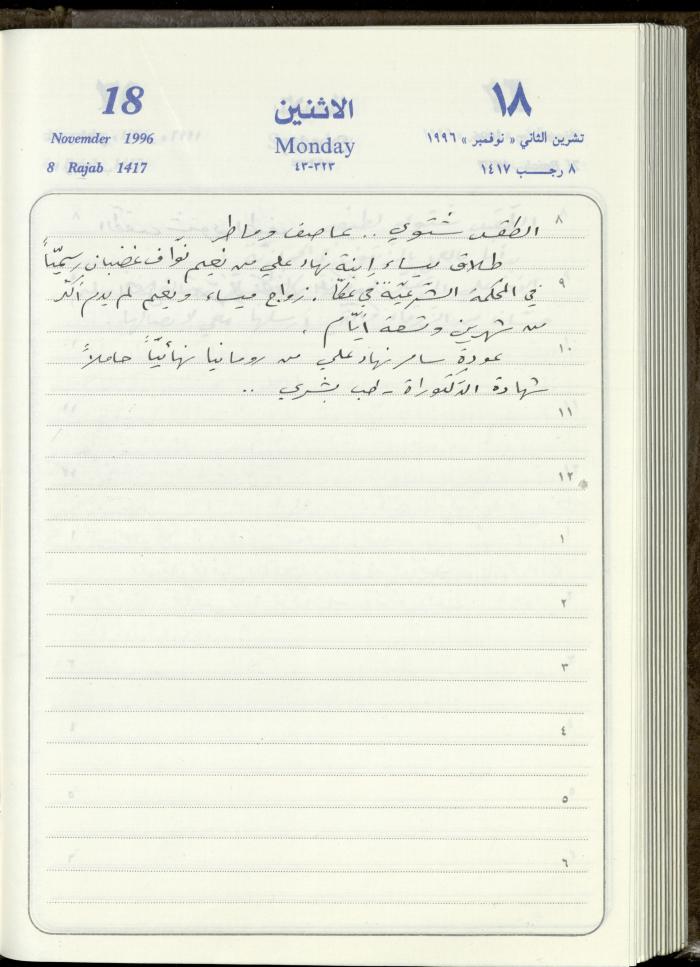 18
الاثنين
١٨
Novemder 1996
Monday
تشرين الثاني « نوفمبر » ١٩٩٦
8 Rajab 1417
٣٢٣-٤٣
٨ رجب ١٤١٧
٨
الطقس شتوي .. عاصف وماطر
طلاق ميساء إبنة نهاد علي من نعيم نوّاف غضبان رسميّاً
٩
في المحكمة الشرعيّة في عكّا . زواج ميساء ونعيم لم يدم أكثر
من شهرين وتسعة أيّام .
١٠
عودة سامر نهاد علي من رومانيا نهائيّاً حاملاً
شهادة الدكتوراة - طب بشري ..
١١
١٢
١
٢
٣
٤
٥
٦